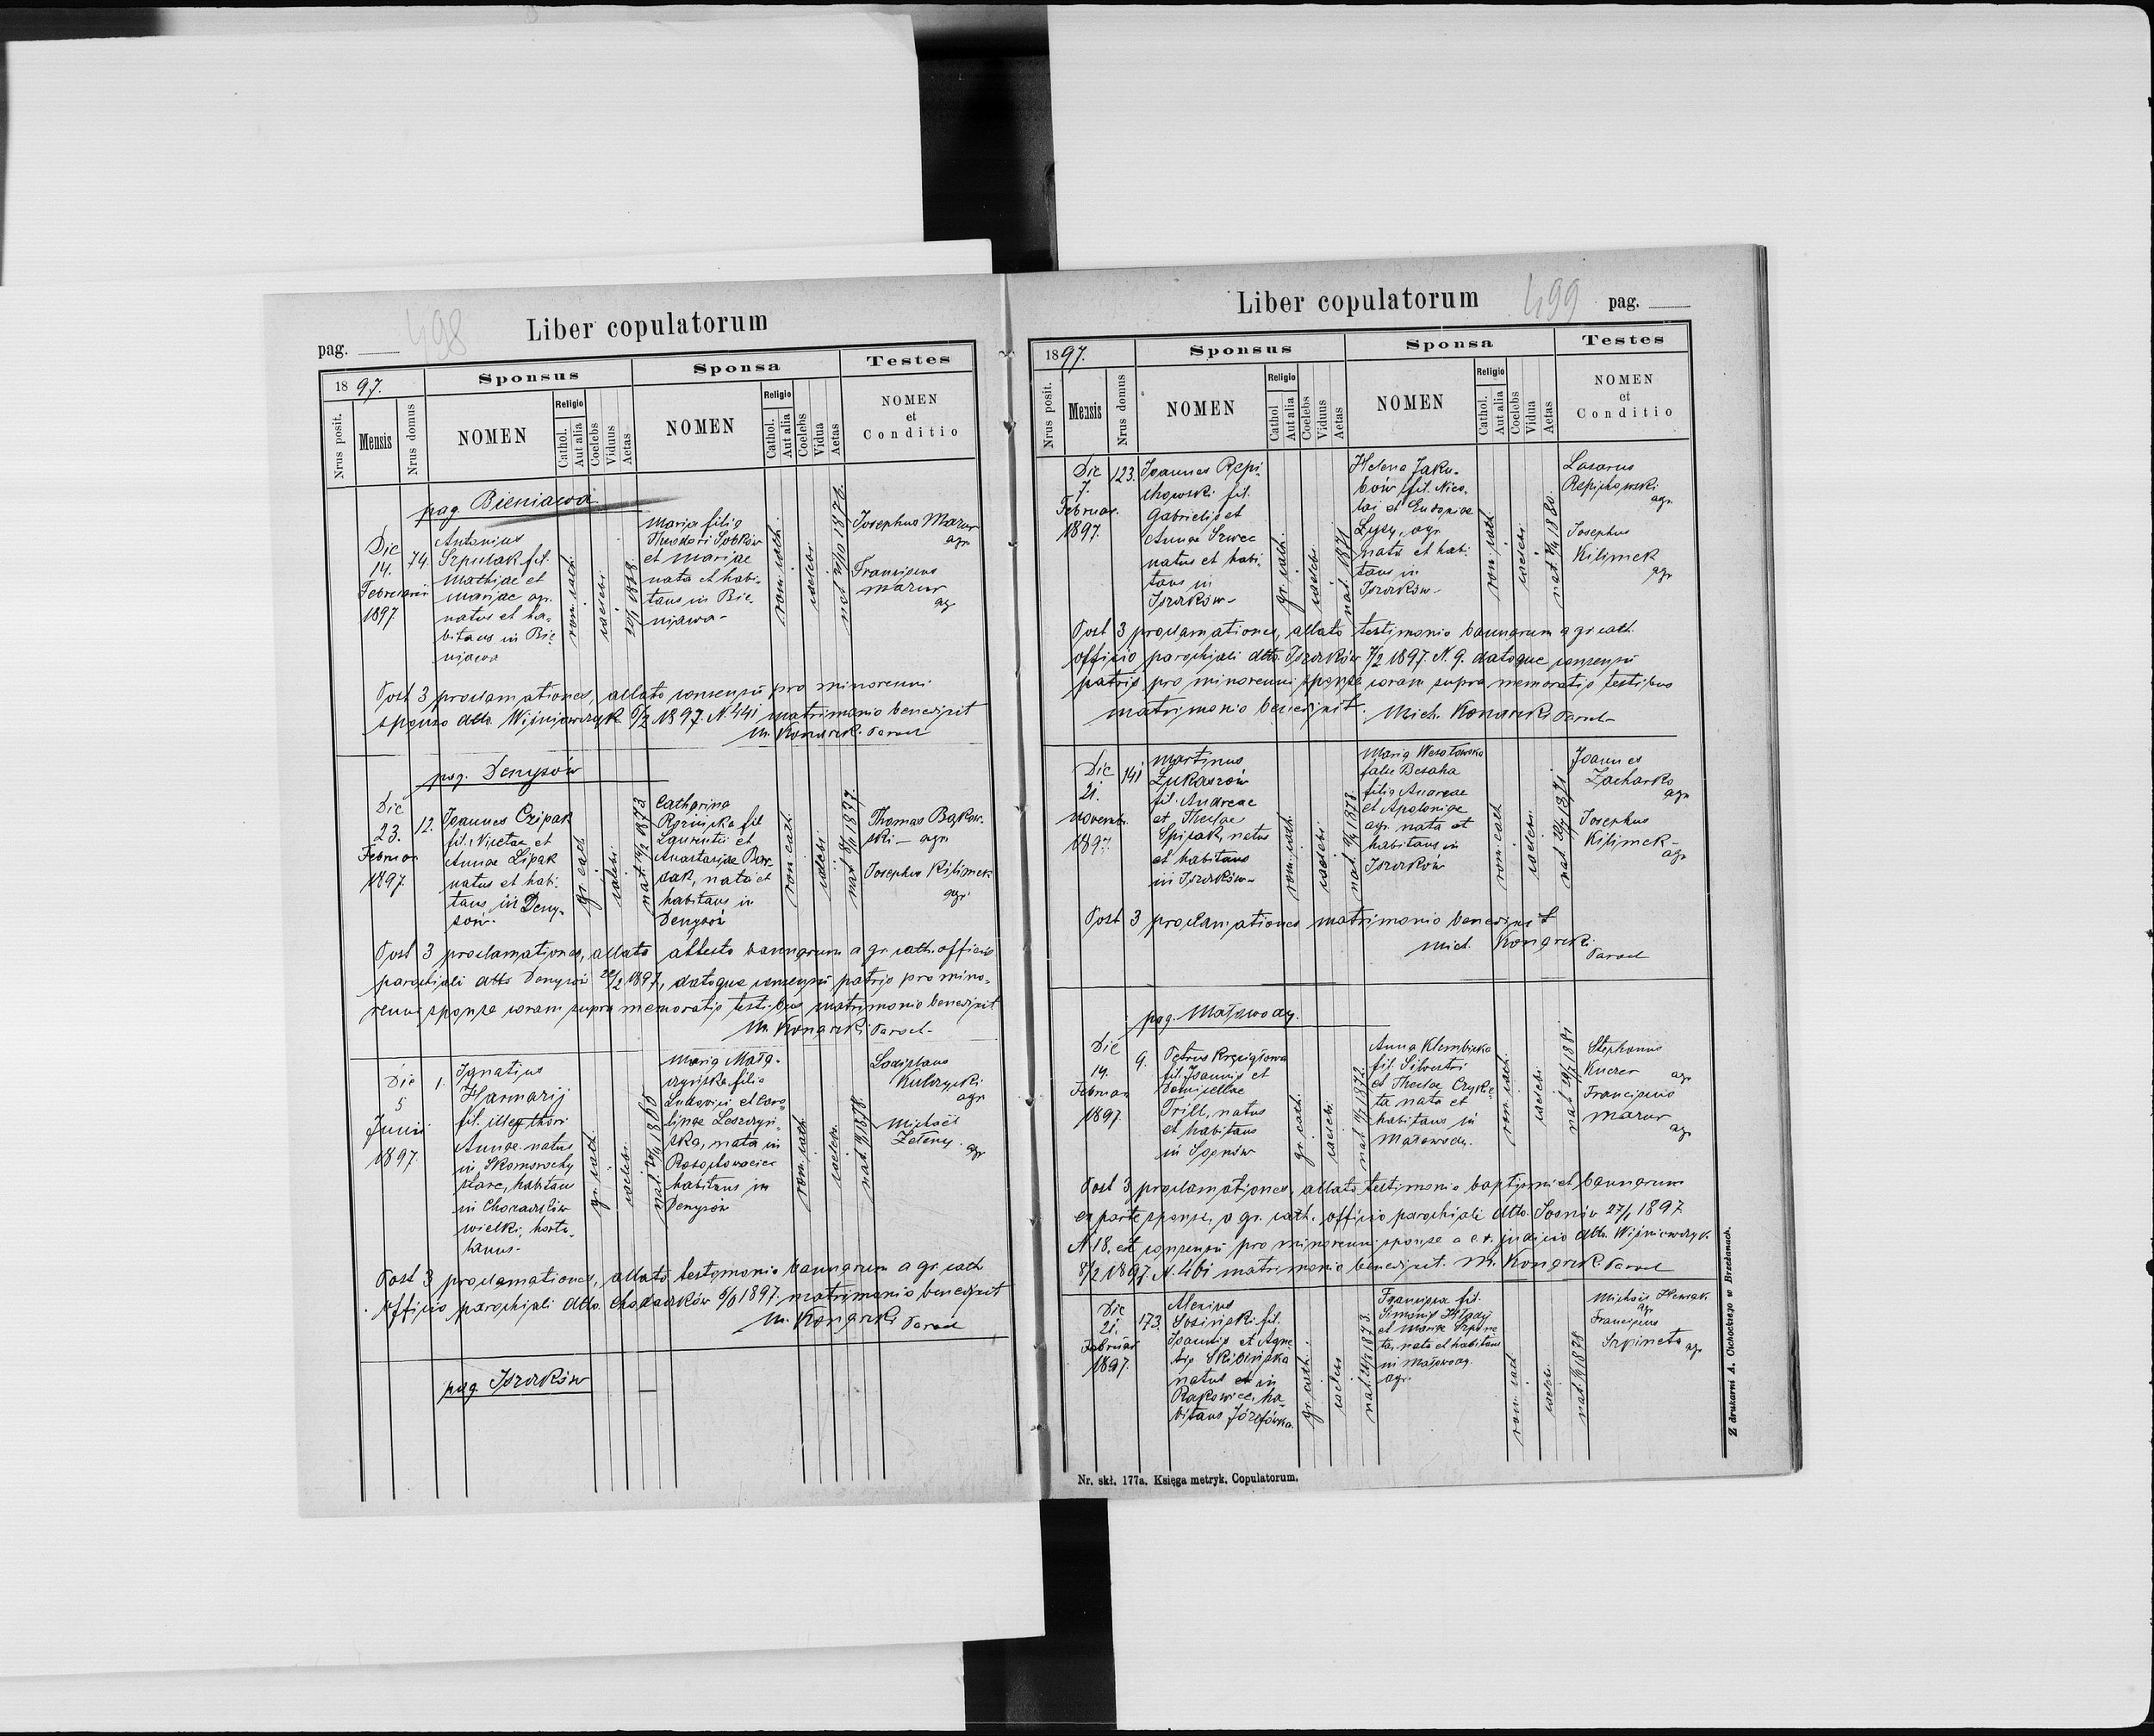 498
Liber copulatorum
pag.
1897.
Sponsus
Sponsa
Testes
Nrus posit.
Mensis
Nrus domus
NOMEN
Religio
Cathol.
Aut alia
Coelebs
Viduus
Aetas
NOMEN
Religio
Cathol.
Aut alia
Coelebs
Vidua
Aetas
NOMEN
et
Conditio
pag. Bieniawa
Die
14.
Februarii
1897
74.
Antonius
Szpulak fil.
Mathiae et
Mariae agr.
natus et ha-
bitans in Bie-
niawa
rom. cath.
caelebs
1868
Maria filia
Theodori Sobków
et Mariae
nata et habi-
tans in Bie-
niawa-
rom. cath.
caelebs
Josephus Mazur
agr.
Franciscus
Mazur
agr
Post 3 proclamationes, allato consensu pro minorenni
sponso dtto. Wiśniowczyk 6/2 1897. N. 441 matrimonio benedixit
M. Konarski Paroch
pag. Denysów
Die
23.
Februar
1897.
12.
Joannes Czipak
fil. Nicetae et
Annae Lipak
natus et habi-
tans in Deny-
sów.
gr. cath
caelebs
1873
Catharina
fil
Laurentii et
Anastasiae
nata et
habitans in
Denysów
rom. cath.
caelebs
Thomas Bąkow-
ski - agr.
Josephus Kilimek
agr.
Post 3 proclamationes, allato attesto bannorum a gr. cath. officio
parochiali dtto Denysów 22/2 1897, datoque consensu patris pro mino-
renni sponsa coram supra memoratis testibus matrimonio benedixit
M. Konarski Paroch-
Die
5
Junii
1897.
1.
Ignatius
Harmarij
fil. illeg thori
Annae natus
in Skomorochy
stare, habitans
in Chodaczków
wielki, hortu-
lanus-
gr. cath.
caelebs
Maria Mała-
czyńska filia
Ludovici et Caro-
linae Leszczyń-
ska, nata in
habitans in
Denysów
rom. cath
caelebs
1878
Ladislaus
Kulczycki
agr
Michaël
Zeleny.
agr
Post 3 proclamationes, allato testimonio bannorum a gr. cath
officio parochiali dtto. Chodaczków 5/6 1897. matrimonio benedixit
M. Konarski Paroch
pag. Iszczków
499
Liber copulatorum
pag.
1897.
Sponsus
Sponsa
Testes
Nrus posit.
Mensis
Nrus domus
NOMEN
Religio
Cathol.
Aut alia
Coelebs
Viduus
Aetas
NOMEN
Religio
Cathol.
Aut alia
Coelebs
Vidua
Aetas
NOMEN
et
Conditio
Die
7.
Februar.
1897.
123.
Joannes Repi-
chowski fil.
Gabrielis et
Annae Szwec
natus et habi-
tans in
Iszczków-
gr. cath.
caelebs
nat. 1871
Helena Jaku-
bów fil. Nico-
lai et Eudoxiae
Łysy, agr.
nata et habi-
tans in
Iszczków-
rom. cath.
caelebs
1880
Lazarus
Repichowski
agr.
Josephus
Kilimek
agr
Post 3 proclamationes, allato testimonio bannorum a gr. cath.
officio parochiali dtto. Iszczków 7/2 1897. N. 9. datoque consensu
patris pro minorenni sponsa coram supra memoratis testibus
matrimonio benedixit. Mich. Konarski Paroch-
Die
21.
Novemb.
1897.
141
Martinus
Łukaszów
fil. Andreae
et Theclae
Spisak, natus
et habitans
in Iszczków-
rom. cath.
caelebs
1878
Maria Wesołowska
false Besaha
filia Andreae
et Apoloniae
agr. nata et
habitans in
Iszczków
rom. cath
caelebs
Joannes
Zacharko
agr
Josephus
Kilimek-
agr
Post 3 proclamationes matrimonio benedixit
Mich. Konarski
Paroch
pag. Małowody.
Die
14.
Februar
1897
9.
Petrus
fil. Joannis et
Domicellae
Trill, natus
et habitans
in Sosnów
gr. cath.
caelebs
1872
Anna Klembicka
fil. Silvestri
et Theclae
nata et
habitans in
Małowody.
rom. cath.
caelebs
Stephanus
Kuczer
agr
Franciscus
Mazur
agr
Post 3 proclamationes, allato testimonio baptismi et bannorum
ex parte sponsi, a gr. cath. officio parochiali dtto. Sosnów 27/1 1897
N 18. et consensu pro minorenni sponsa a c. r. judicio dtto. Wiśniowczyk
8/2 1897. N. matrimonio benedixit. M. Konarski Paroch
Die
21.
Februar
1897.
173.
Alexius
Sosiński fil.
Joannis et Agne-
tis Skibińska
natus in
Rakowiec, ha-
bitans Józefówka.
gr. cath.
caelebs
1873.
Francisca fil.
Simonis Hlady
et Mariae
nata et habitans
in Małowody.
agr.
rom. cath
caelebs
1878
Michaël
agr
Franciscus
Szpineta agr
Nr. skł. 177a. Księga metryk. Copulatorum.
Z drukarni A. Cichockiego w Brzeżanach.